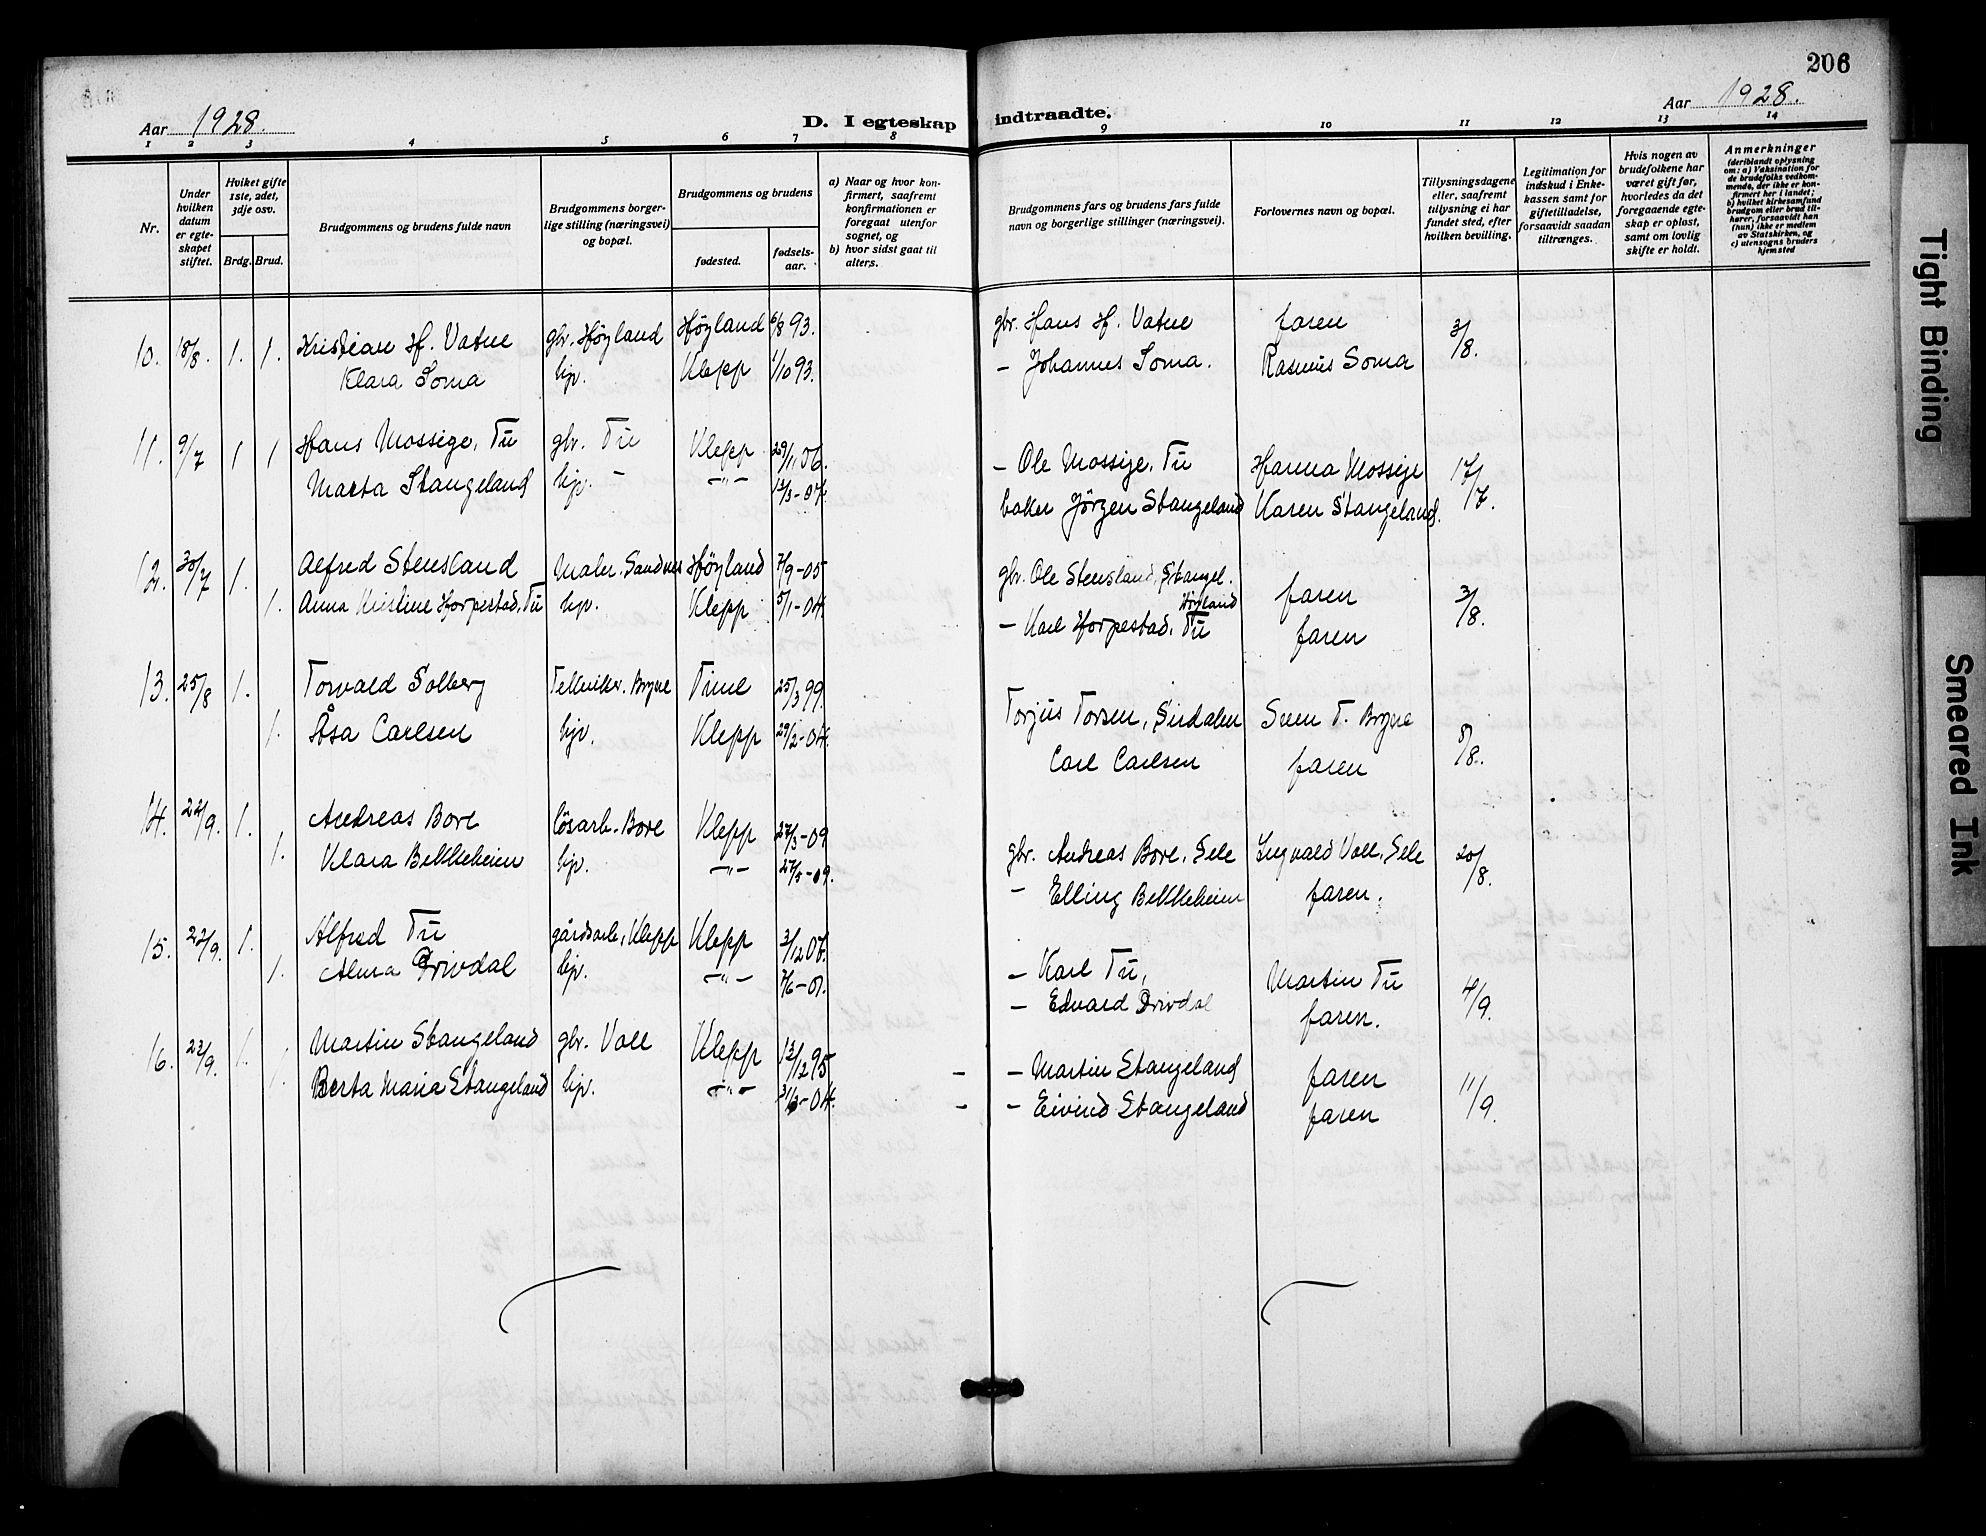 206
Aar 1928.
D. I egteskap indtraadte.
Aar 1928.
1 2 3 4 5 6 7 8 9 10 11 12 13 14
Nr.
Under hvilken datum er egteskapet stiftet.
Hviket gifte 1ste, 2det, 3dje osv.
Brdg. Brud.
Brudgommens og brudens fulde navn
Brudgommens borgerlige stilling (næringsvei) og bopæl.
Brudgommens og brudens
fødested.
fødselsaar.
a) Naar og hvor konfirmert, saafremt konfirmationen er foregaat utenfor sognet, og
b) hvor sidst gaat til alters.
Brudgommens fars og brudens fars fulde navn og borgerlige stillinger (næringsvei).
Forlovernes navn og bopæl.
Tillysningsdagene eller, saafremt tillysning ei har fundet sted, efter hvilken bevilling.
Legitimation for indskud i Enkekassen samt for giftetilladelse, forsaavidt saadan tiltrænges.
Hvis nogen av brudefolkene har været gift før, hvorledes da det foregaaende egteskap er opløst, samt om lovlig skifte er holdt.
Anmerkninger
(deriblandt oplysning om: a) Vaksination for de brudefolks vedkommende, der ikke er konfirmert her i landet; b) hvilket kirkesamfund brudgom eller brud tilhører, forsaavidt han (hun) ikke er medlem av Statskirken, og c) utensogns bruders hjemsted
10. 18/8. 1. 1. Kristian H. Vatne gbr. Høyland Høyland 6/8 93. gbr. Hans H. Vatne faren 3/8.
Klara Soma hjv. Klepp 1/10 93. - Johannes Soma. Rasmus Soma
11. 9/7 1 1 Hans Mossige, Tu gbr. Tu Klepp 29/1 06. - Ole Mossige, Tu Hanna Mossige 17/7.
Marta Stangeland hjv. - -"- 13/3-07. baker Jörgen Stangeland Karen Stangeland.
12. 30/7 1. Alfred Stensland Maler. Sandnes Høyland 7/9-05 gbr. Ole Stensland, Stangel. Høyland faren 3/8.
1. Anna Kristine Horpestad, Tu hjv. Klepp 5/1-04. - Karl Horpestad, Tu faren
13. 25/8 1. Torvald Solberg Tekniker. Bryne Time 25/3 99. Torjus Torsen, Sirdalen Sven T. Bryne 5/8.
1. Åsa Carlsen hjv. Klepp 29/2-04. Carl Carlsen faren
14. 22/9. 1. Andreas Bore løsarb. Bore Klepp 27/3-09 gbr. Andreas Bore, Sele Ingvald Voll, Sele 20/8.
1. Klara Bekkeheien hjv. -"- 27/5-09. - Elling Bekkeheien faren.
15. 22/9. 1. Alfred Tu gårdsarb, Klepp Klepp 3/12 06. - Karl Tu, Martin Tu 4/9.
1. Alma Drivdal hjv. -"- 7/6-07. - Edvard Drivdal faren.
16. 22/9. 1. 1. Martin Stangeland gbr. Voll Klepp 13/12 95 - - Martin Stangeland faren 11/9.
1. Berta Maria Stangeland hjv. -"- 31/3-04. - - Eivind Stangeland faren
Tight Binding
Smeared Ink